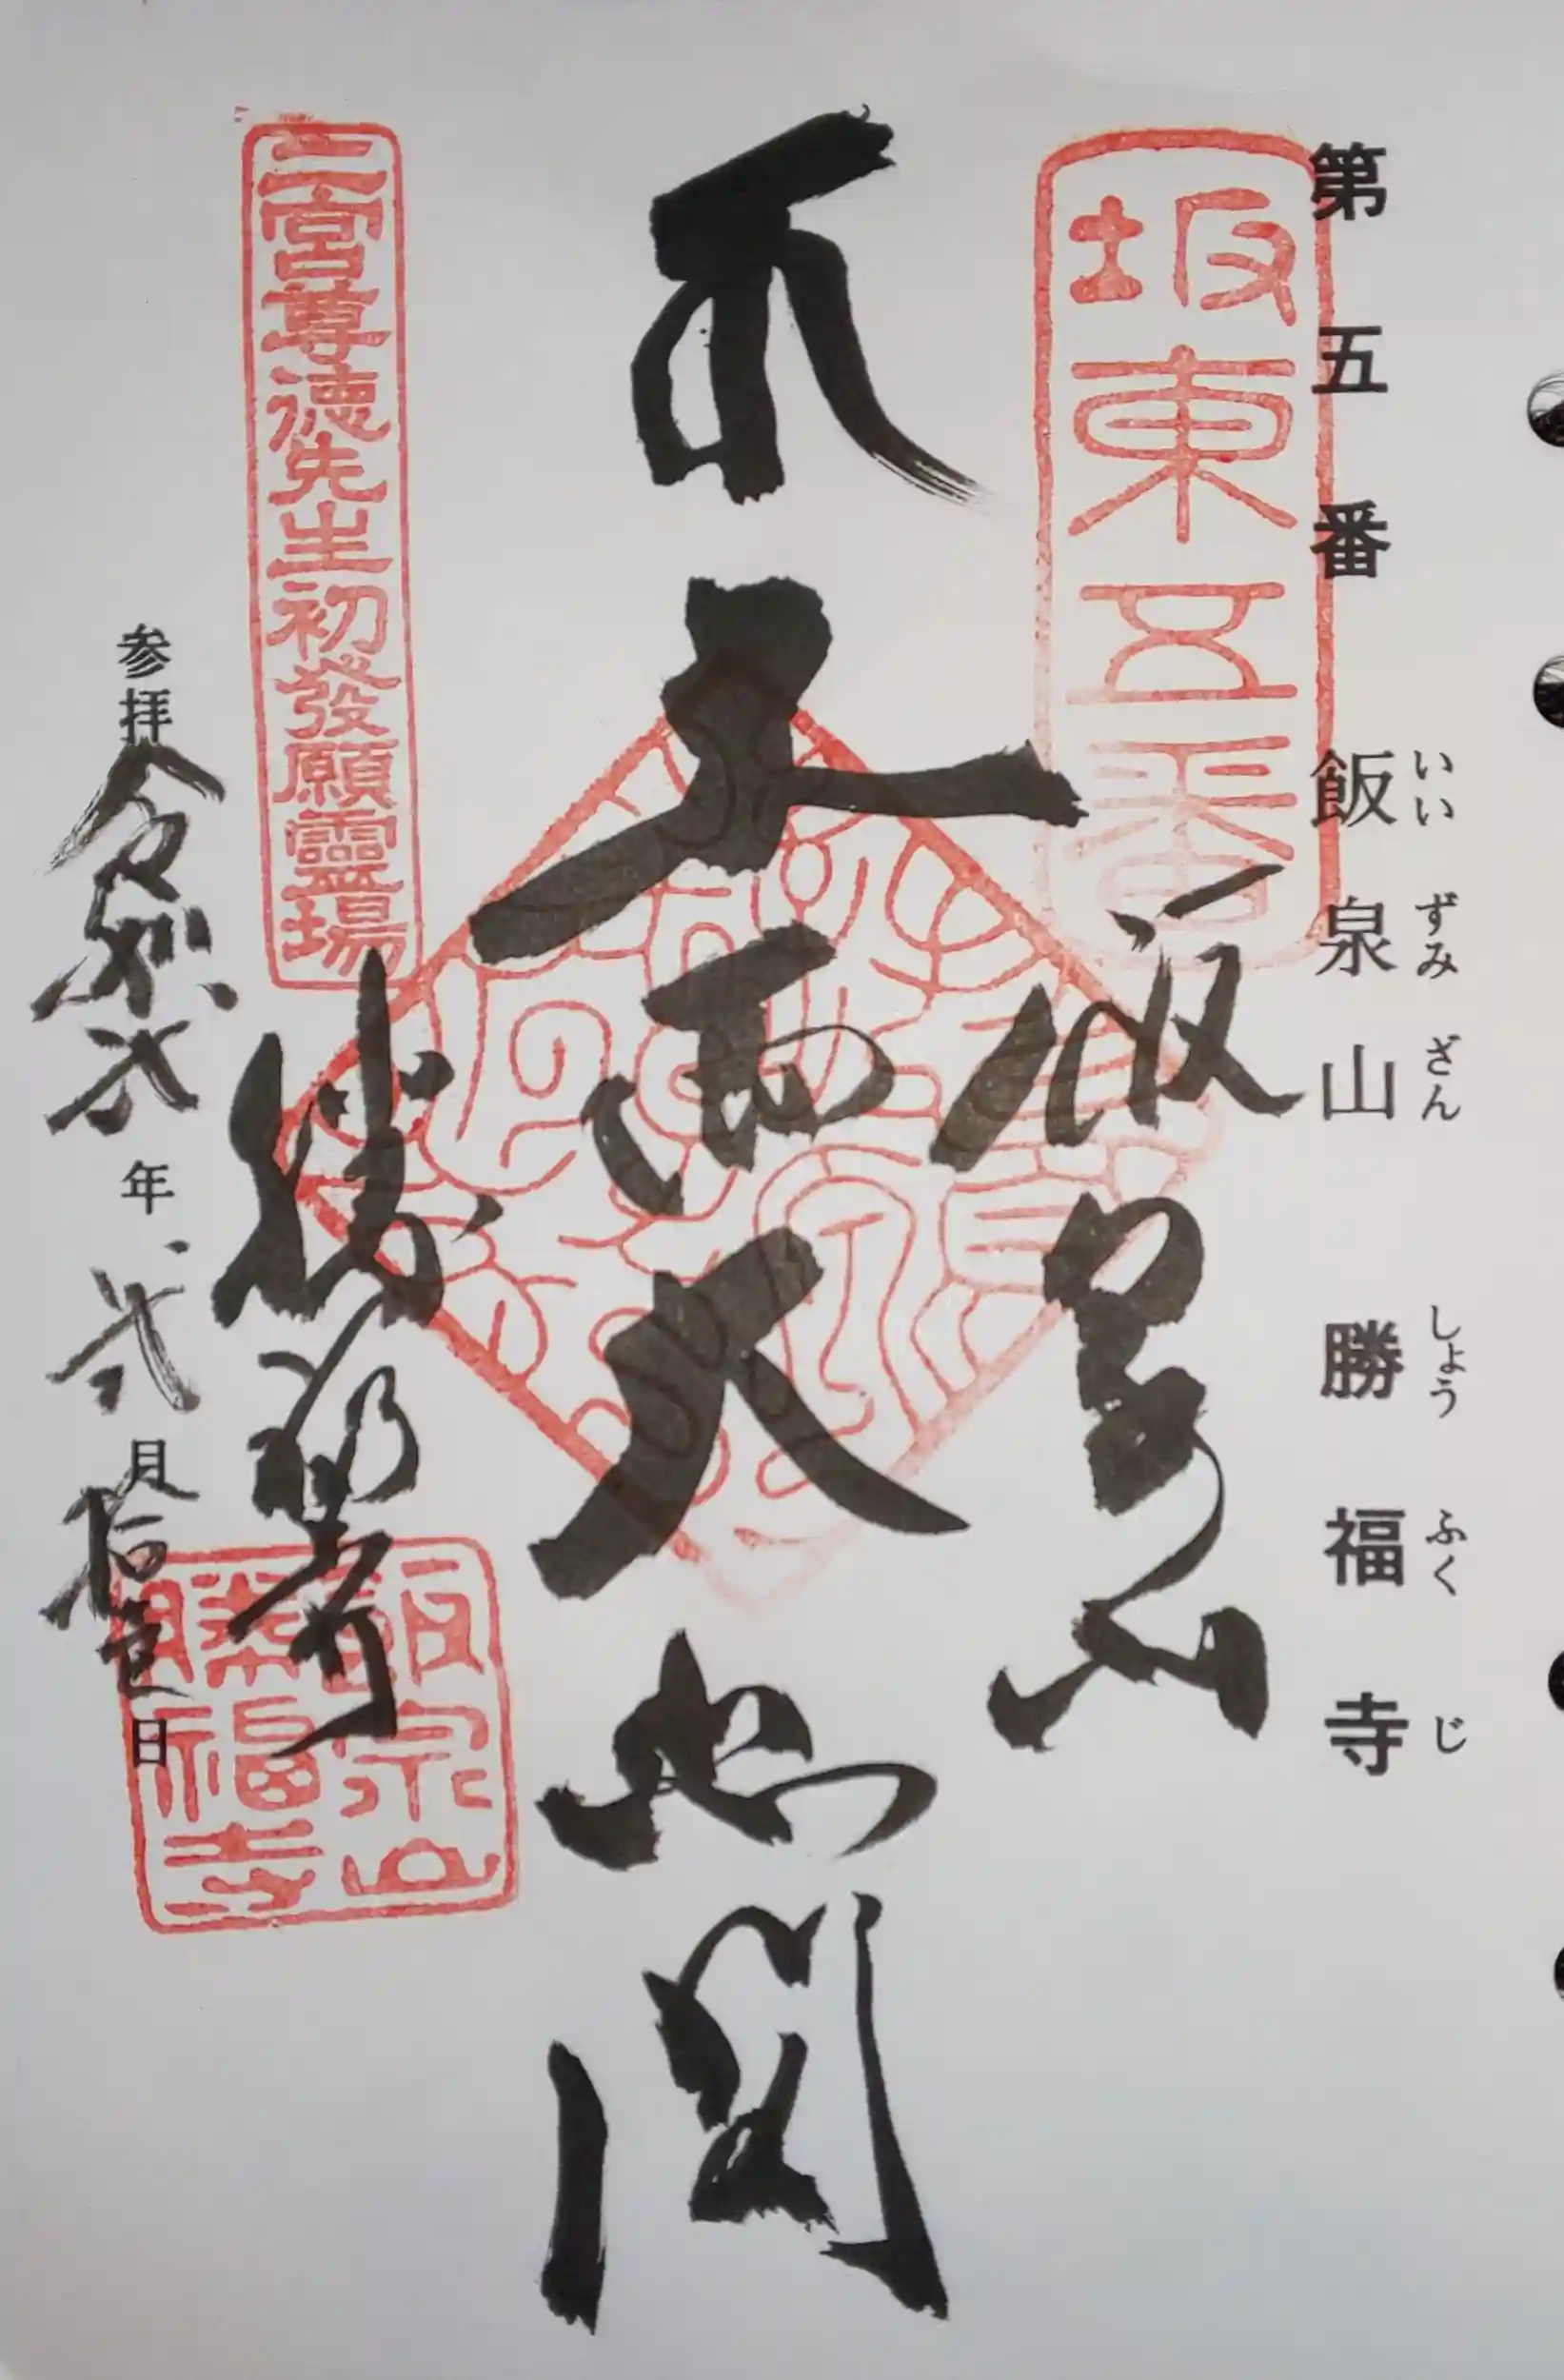 第五番 飯泉山 勝福寺
いいずみざん しょうふくじ
坂東五番
飯泉山
十一面大悲閣
勝福寺
二宮尊徳先生初發願靈場
飯泉山
勝福寺
参拝 令和弐年 弐月拾壱日